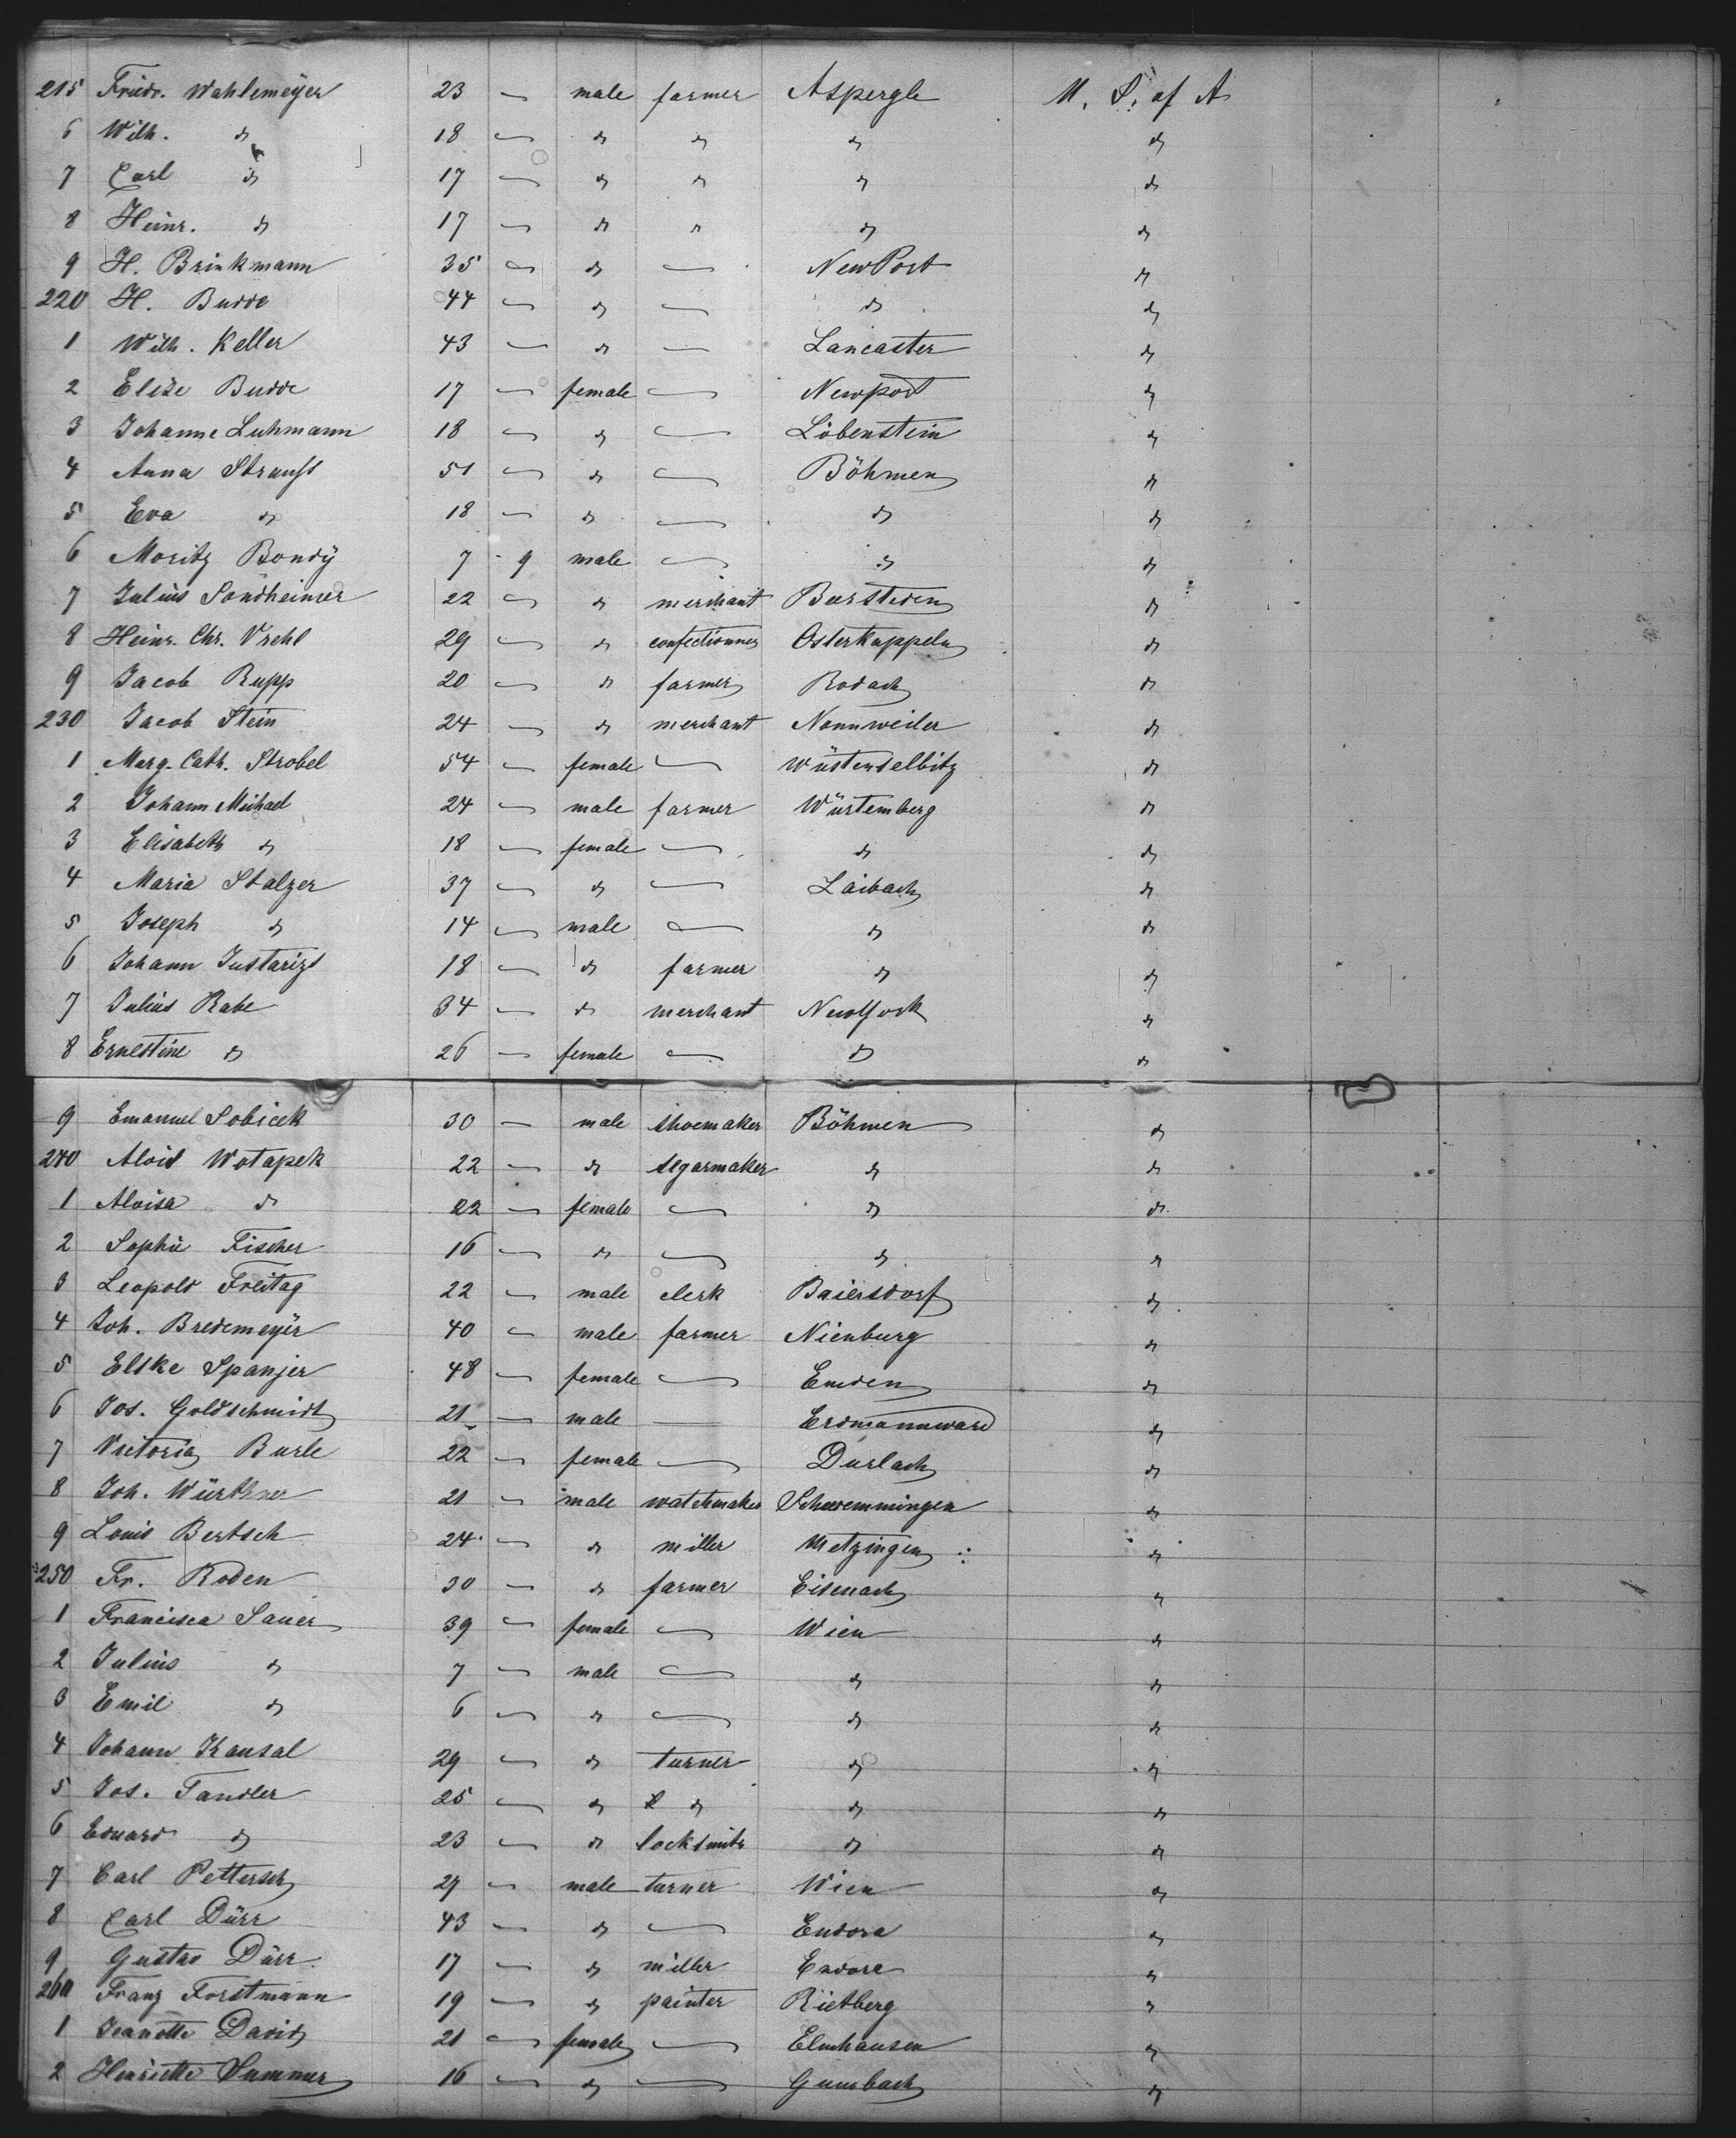 215 Friedr. Wahlemeÿer 23 — male farmer Aspergle U. S. of A
6 Wilh. " 18 — " " " "
7 Carl " 17 — " " " "
8 Heinr. " 17 — " " " "
9 H. Brinkmann 35 — " — NewPort "
220 H. Budde 44 — " — " "
1 Wilh. Keller 43 — " — Lancaster "
2 Elise Budde 17 — female — Newport "
3 Johanne Luhmann 18 — " — Löbenstein "
4 Anna Strauss 51 — " — Böhmen "
5 Eva " 18 — " — " "
6 Moritz Bondÿ 7 9 male — " "
7 Julius Sondheimer 22 — " merchant "
8 Heinr. Chr. Vrehl 29 — " confectionner Osterkappeln "
9 Jacob Rupp 20 — " farmer Rodach "
230 Jacob Stein 24 — " merchant Nonnweiler "
1 Marg. Cath. Strobel 54 — female — Wüstenselbitz "
2 Johann Michael 24 — male farmer Würtemberg "
3 Elisabeth " 18 — female — " "
4 Maria Stalzer 37 — " — Laibach "
5 Joseph " 14 — male — " "
6 Johann 18 — " farmer " "
7 Julius Rabe 34 — " merchant NewYork "
8 Ernestine " 26 — female — " "
9 Emanuel Sobicek 30 — male shoemaker Böhmen "
240 Alois Wotapek 22 — " segarmaker " "
1 Aloisa " 22 — female — " "
2 Sophie Fischer 16 — " — " "
3 Leopold Freitag 22 — male clerk Baiersdorf "
4 Joh. Bredemeÿer 40 — male farmer Nienburg "
5 Elske Spanjer 48 — female — Emden "
6 Jos. Goldschmidt 21 — male — "
7 Victoria Burle 22 — female — Durlach "
8 Joh. Würthner 21 — male watchmaker Schwemmingen "
9 Louis Bertsch 24 — " miller Metzingen "
250 Fr. Roden 30 — " farmer Eisenach "
1 Francisca Sauer 39 — female — Wien "
2 Julius " 7 — male — " "
3 Emil " 6 — " — " "
4 Johann Kausal 29 — " turner " "
5 Jos. Tandler 25 — " " " "
6 Eduard " 23 — " locksmith " "
7 Carl Pettersch 29 — male turner Wien "
8 Carl Dürr 43 — " — Eudora "
9 Gustav Dürr 17 — " miller "
260 Franz Forstmann 19 — " painter Rietberg "
1 Jeanette David 21 — female — Elmhausen "
2 Henriette Summer 16 — " — Gumbach "